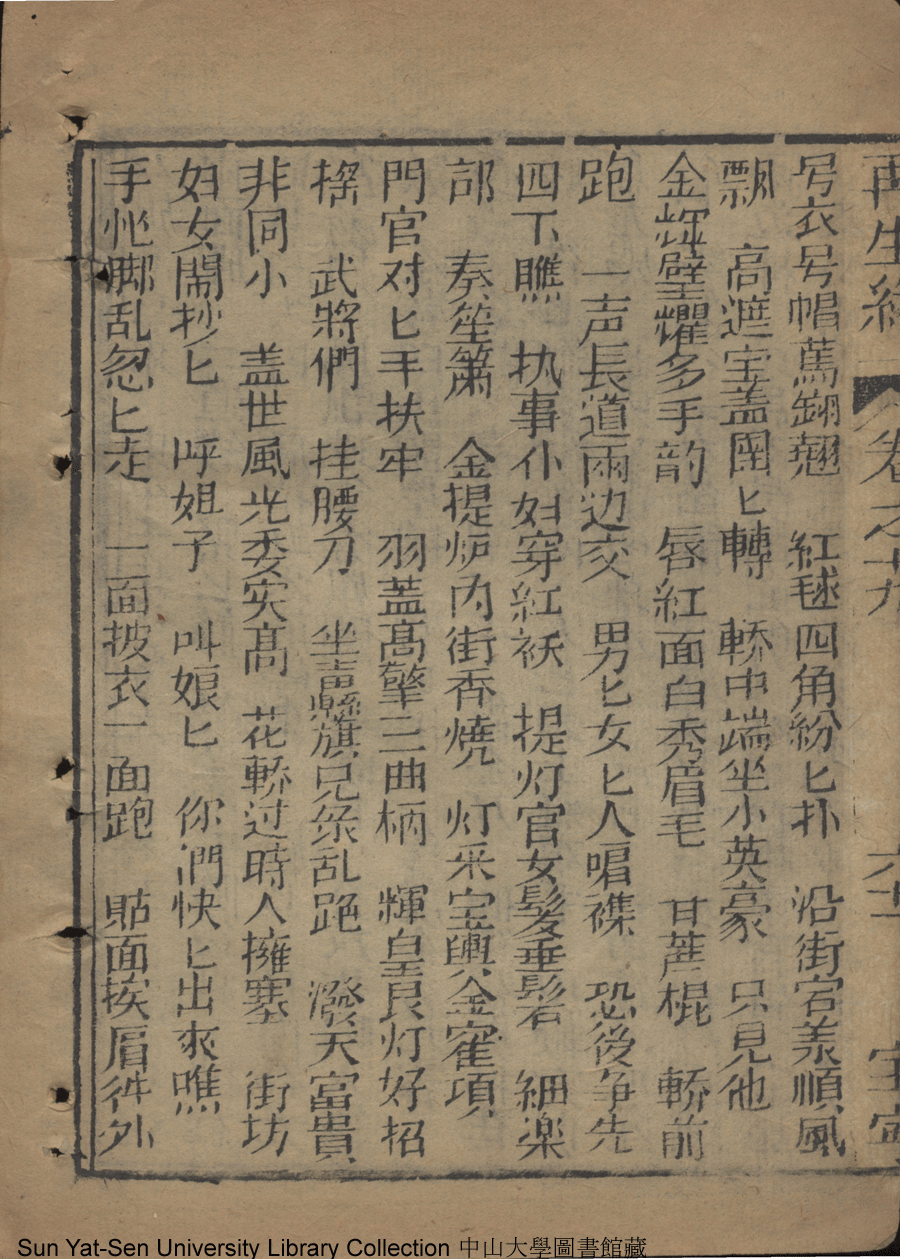 再生緣 卷之十九 六十一 宝寧
号衣号帽蔦翎翹 紅毬四角紛匕扑 沿街宮羕順風
飘 高遮宝盖團匕轉 轎中端坐小英豪 只見他
金輝璧耀多手韵 唇紅面白秀眉毛 甘蔗棍 轎前
跑 一声長道兩边交 男匕女匕人唱襍 恐後争先
四下瞧 执事仆妇穿紅袄 提灯官女髮垂髫 細楽
部 奏笙簫 金提炉内街香燒 灯采宝輿金寉項
門官对匕手扶牢 羽蓋髙擎三曲柄 輝皇艮灯好招
搖 武將們 挂腰刀 坐纛旗兒乱跑 潑天富貴
非同小 盖世風光委实髙 花轎过時人擁塞 街坊
妇女鬧抄匕 呼姐子 叫娘匕 你們快匕出來瞧
手忙脚乱忽匕走 一面披衣一面跑 貼面挨眉徃外